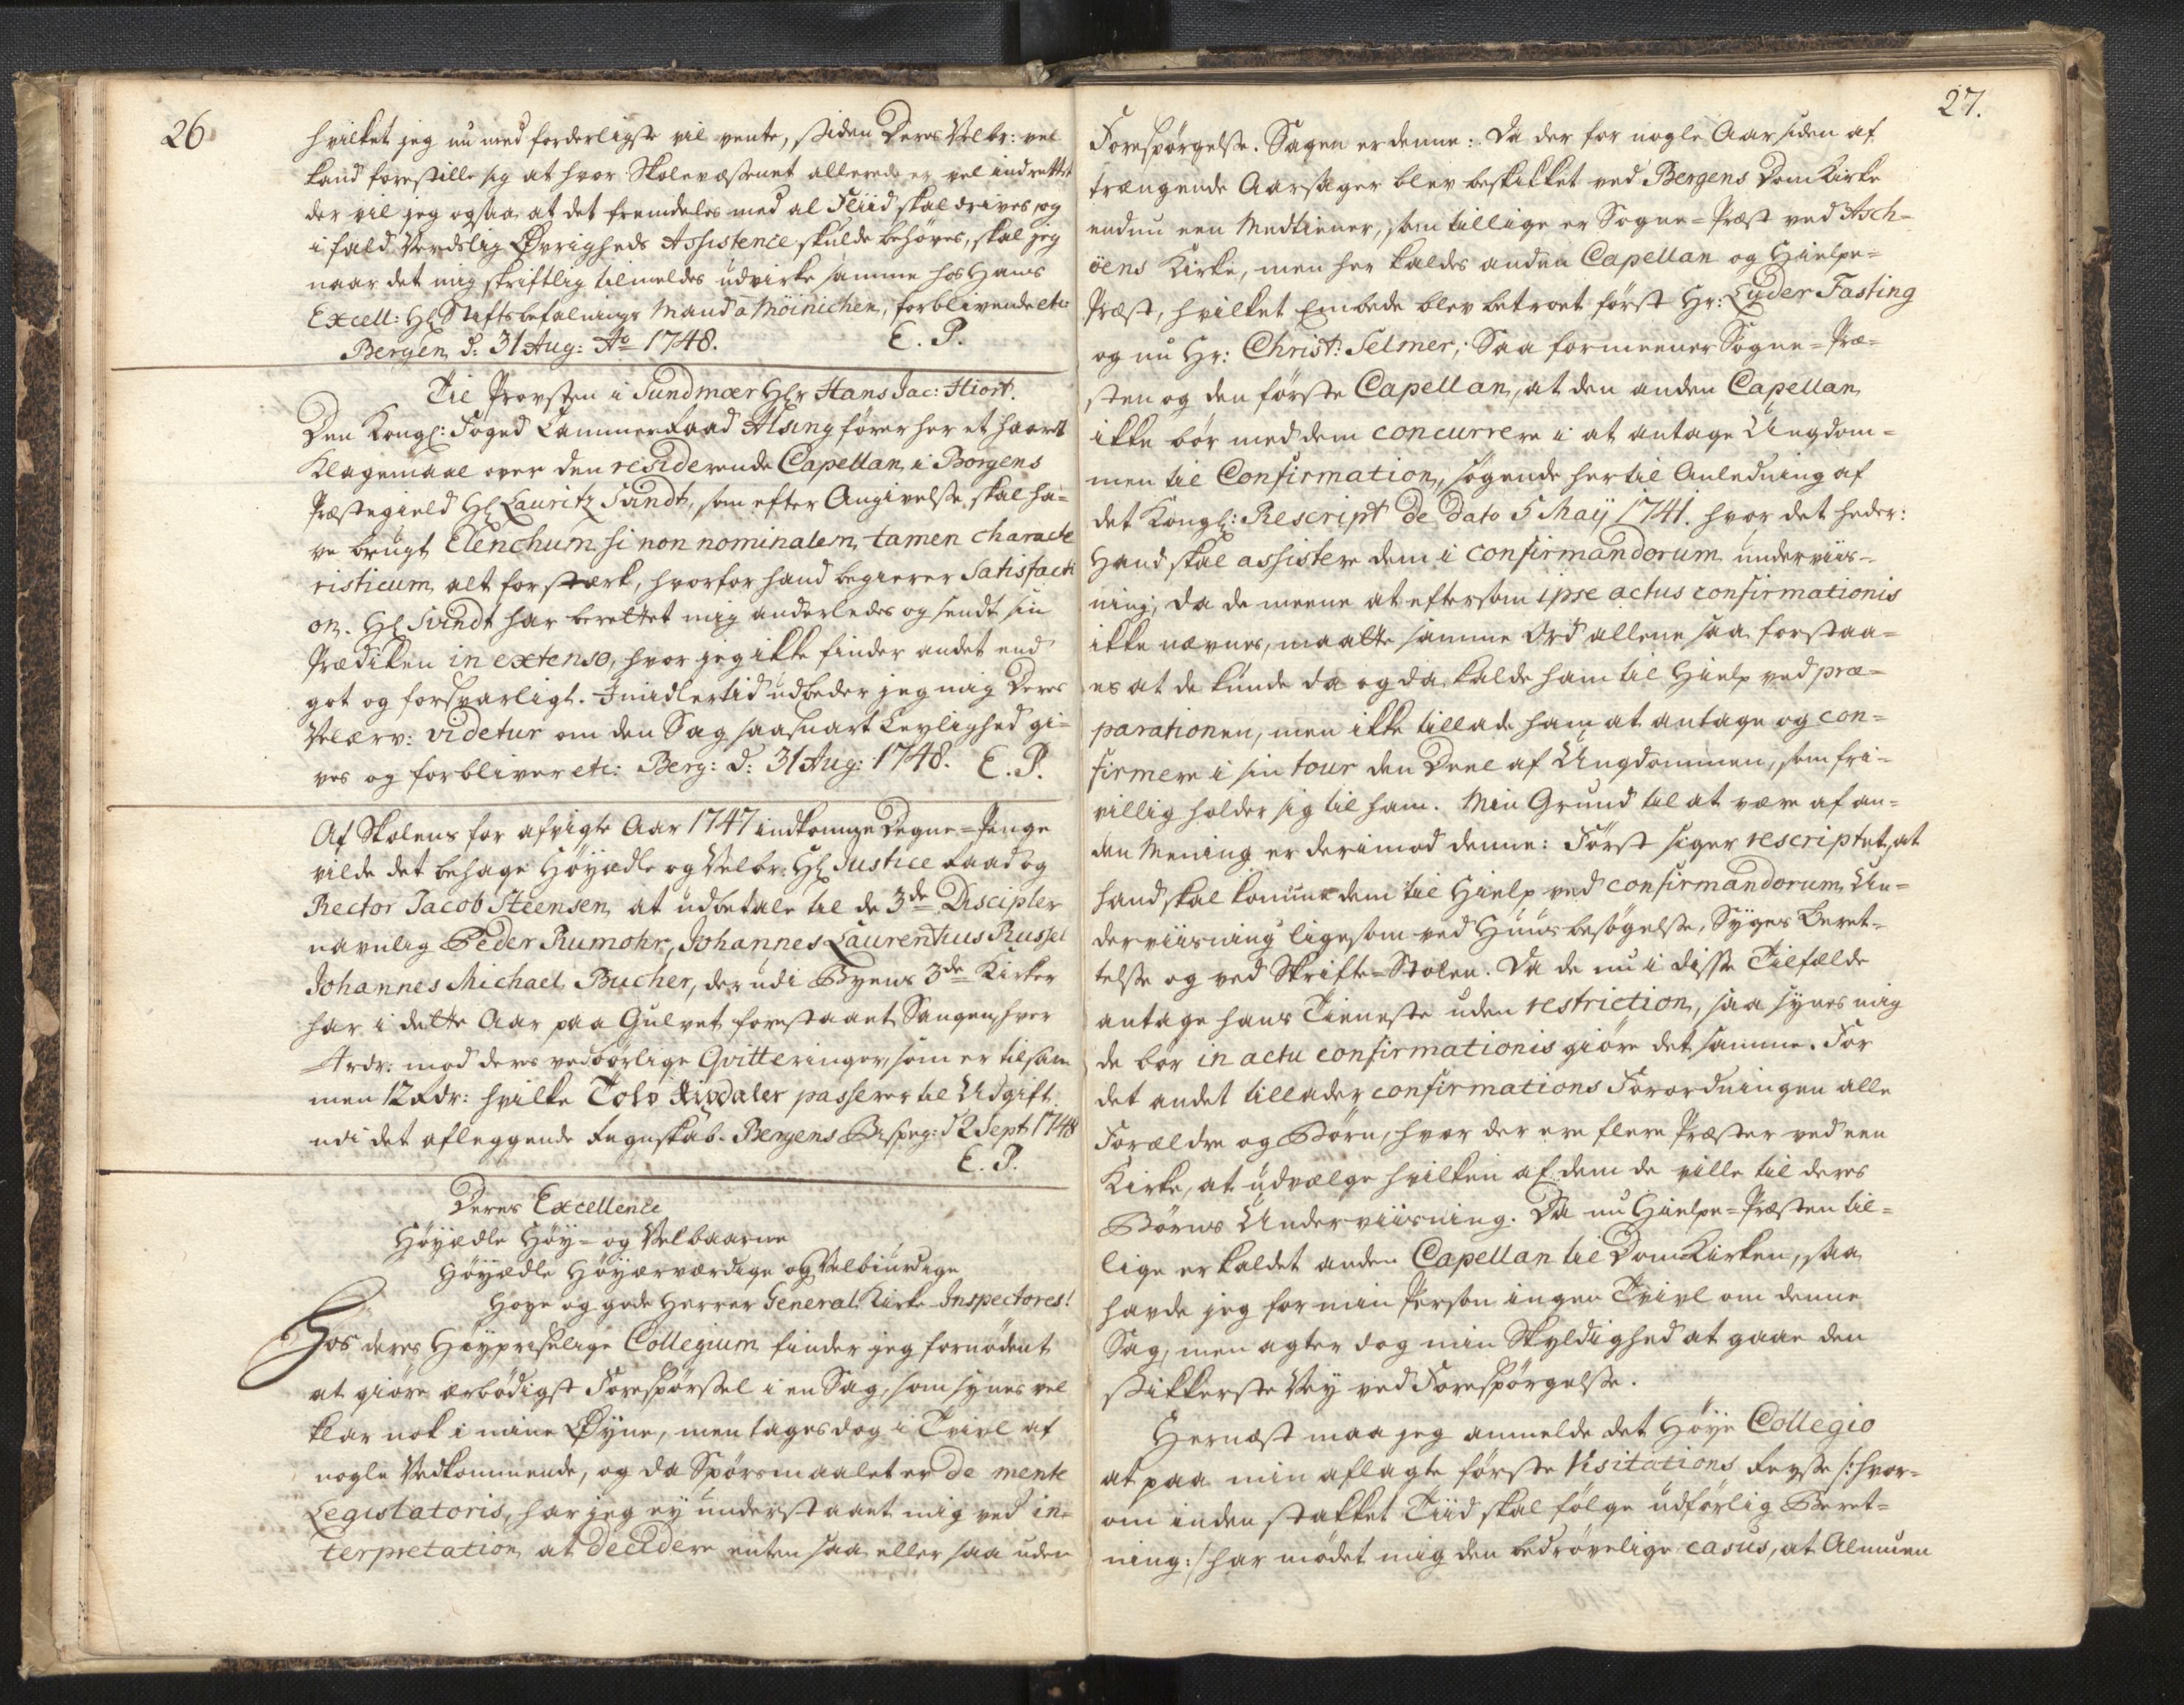 26
hvilket jeg nu med forderligste vil vente, siden Deres Velbr: vel
kand forestille sig at hvor Skolevæsenet allerede er vel indrettet
der vil jeg ogsaa at det fremdeles med al Fliid skal drives, og
i fald Verdslig Øvrigheds Assistence skulde behøves, skal jeg
naar det mig skriftlig tilmeldes udvirke samme hos Hans
Excell: Hl Stiftsbefalnings Mand a Möinichen, forblivende etc
Bergen d: 31 Aug: Ao 1748. E. P.
Til Provsten i Sundmær Hlr Hans Jac: Hiort.
Den Kongl: Foged Cammerraad Alsing fører her et haardt
Klagemaal over den residerende Capellan i Borgens
Præstegield Hl Lauritz Svindt, som efter Angivelse skal ha-
ve brugt Elenchum si non nominalem, tamen characte
risticum alt for stærk, hvorfor hand begierer Satisfacti
on. Hl Svindt har berettet mig anderledes og sendt sin
Prædiken in extenso, hvor jeg ikke finder andet end
got og forsvarligt. Imidlertid udbeder jeg mig Deres
Velærv: videtur om den Sag saasnart Leylighed gi-
ves og forbliver etc: Berg: d: 31 Aug: 1748. E. P.
Af Skolens for afvigte Aar 1747 indkomne Degne-Penge
vilde det behage Höyædle og Velbr: Hl Justice Raad og
Rector Jacob Steensen at udbetale til de 3de Discipler
navnlig Peder Rumohr, Johannes Laurentius Russel
Johannes Michael Bucher, der udi Byens 3de Kirker
har i dette Aar paa Gulvet forestaaet Sangen, hver
4 rdr: mod deres vedbörlige Qvitteringer, som er tilsam
men 12 Rdr: hvilke Tolv Rixdaler passerer til Udgift
udi det aflæggende Regnskab. Bergens Bispeg: d 2 Sept 1748
E. P.
Deres Excellence
Höyædle Höy- og Velbaarne
Höyædle Höyærværdige og Velbiurdige
Høye og gode Herrer General Kirke Inspectores!
Hos deres Höypriselige Collegium finder jeg fornødent
at giöre ærbödigst Forespörsel i en Sag, som synes vel
klar nok i mine Øyne, men tages dog i Tvivl af
nogle Vedkommende, og da Spörsmaalet er de mente
Legislatoris, har jeg ey understaaet mig ved in-
terpretation at decidere enten saa eller saa uden
27.
Forespörgelse. Sagen er denne: Da der for nogle Aar siden af
trængende Aarsager blev beskikket ved Bergens DomKirke
endnu een Medtiener, som tillige er Sogne-Præst ved Asch-
öens Kirke, men her kaldes anden Capellan og Hielpe-
Præst, hvilket Embede blev betroet först Hr: Lyder Fasting
og nu Hr: Christ: Selmer; Saa formeener Sogne-Præ-
sten og den förste Capellan, at den anden Capellan
ikke bör med dem concurrere i at antage Ungdom-
men til Confirmation, sögende hertil Anledning af
det Kongl: Rescript de dato 5 Maij 1741. hvor det heder:
Hand skal assistere dem i confirmandorum underviis-
ning, da de meene at eftersom ipse actus confirmationis
ikke nævnes, maatte samme Ord allene saa forstaa-
es at de kunde da og da kalde ham til Hielp ved præ-
parationen, men ikke tillade ham at antage og con-
firmere i sin tour den Deel af Ungdommen, som fri-
villig holder sig til ham. Min Grund til at være af an-
den Mening er derimod denne: Först siger rescriptet, at
hand skal komme dem til Hielp ved confirmandorum Un-
derviisning ligesom ved Huusbesögelse, Syges Beret-
telse og ved Skrifte-Stolen. Da de nu i disse Tilfælde
antage hans Tieneste uden restriction, saa synes mig
de bör in actu confirmationis giöre det samme. For
det andet tillader confirmations Forordningen alle
Forældre og Börn, hvor der ere flere Præster ved een
Kirke, at udvælge hvilken af dem de ville til deres
Börns Underviisning. Da nu Hielpe-Præsten til-
lige er kaldet anden Capellan til DomKirken, saa
havde jeg for min Person ingen Tvivl om denne
Sag, men agter dog min Skyldighed at gaae den
sikkerste Vey ved Forespörgelse.
Hernæst maa jeg anmelde det Höye Collegio
at paa min aflagte förste Visitations Reyse /:hvor-
om inden stakket Tiid skal fölge udförlig Beret-
ning:/ har mödet mig den bedrövelige casus, at Almuen